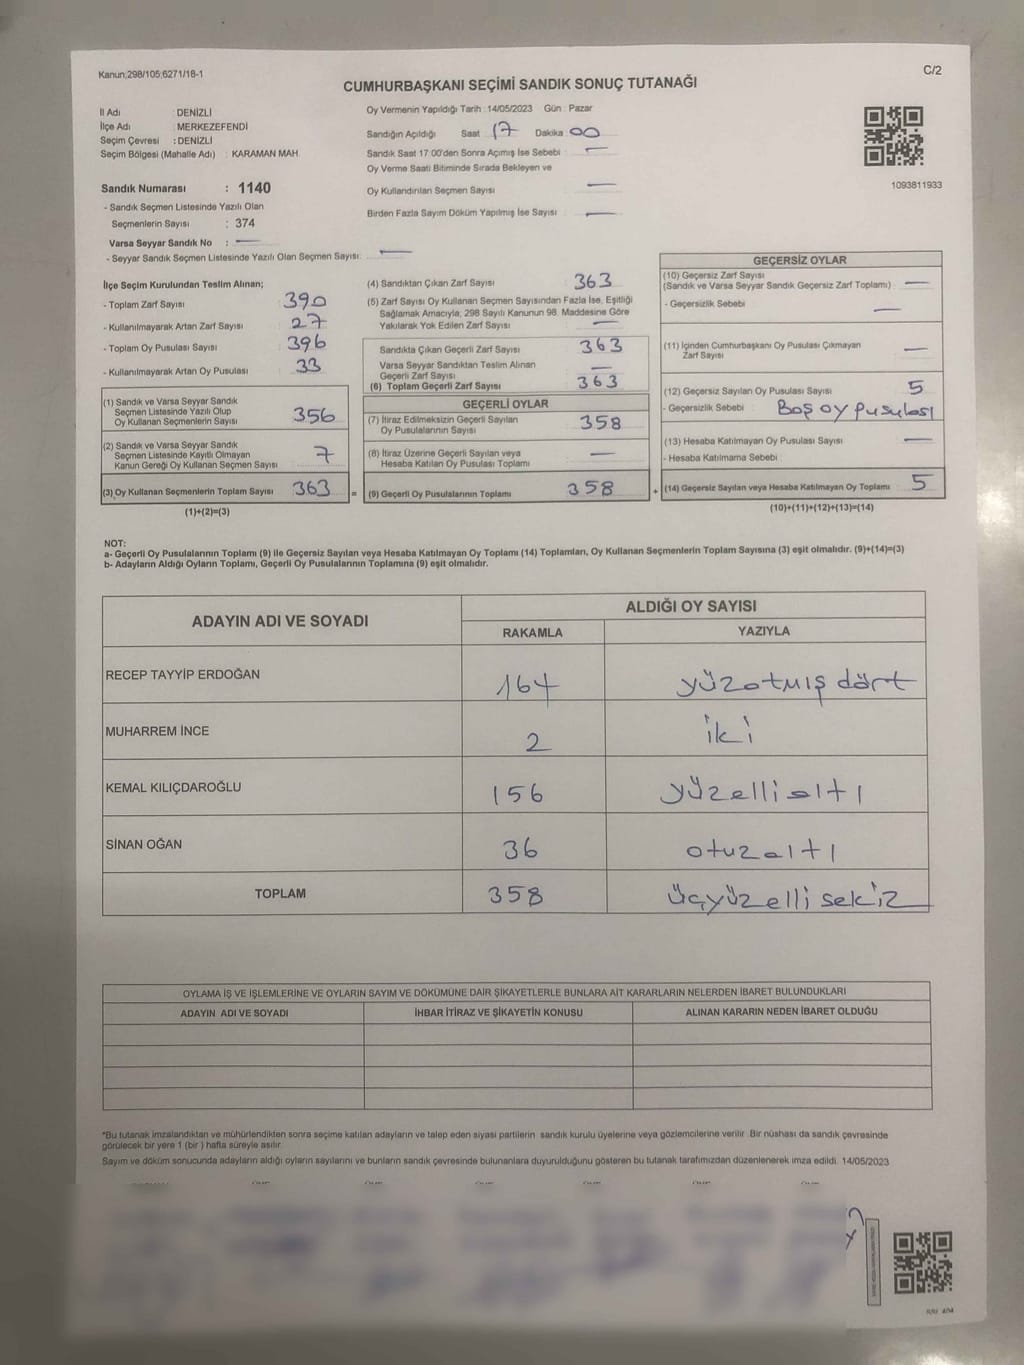 Kanun;298/105;6271/18-1
C/2
CUMHURBAŞKANI SEÇİMİ SANDIK SONUÇ TUTANAĞI
İl Adı : DENİZLİ
İlçe Adı : MERKEZEFENDİ
Seçim Çevresi : DENİZLİ
Seçim Bölgesi (Mahalle Adı) : KARAMAN MAH.
Sandık Numarası : 1140
- Sandık Seçmen Listesinde Yazılı Olan
Seçmenlerin Sayısı : 374
Varsa Seyyar Sandık No : —
- Seyyar Sandık Seçmen Listesinde Yazılı Olan Seçmen Sayısı: —
Oy Vermenin Yapıldığı Tarih : 14/05/2023 Gün : Pazar
Sandığın Açıldığı Saat 17 Dakika 00
Sandık Saat 17:00'den Sonra Açımış İse Sebebi : —
Oy Verme Saati Bitiminde Sırada Bekleyen ve
Oy Kullandırılan Seçmen Sayısı —
Birden Fazla Sayım Döküm Yapılmış İse Sayısı —
1093811933
İlçe Seçim Kurulundan Teslim Alınan;
- Toplam Zarf Sayısı 390
- Kullanılmayarak Artan Zarf Sayısı 27
- Toplam Oy Pusulası Sayısı 396
- Kullanılmayarak Artan Oy Pusulası 33
(1) Sandık ve Varsa Seyyar Sandık
Seçmen Listesinde Yazılı Olup
Oy Kullanan Seçmenlerin Sayısı 356
(2) Sandık ve Varsa Seyyar Sandık
Seçmen Listesinde Kayıtlı Olmayan
Kanun Gereği Oy Kullanan Seçmen Sayısı 7
(3) Oy Kullanan Seçmenlerin Toplam Sayısı 363 =
(1)+(2)=(3)
(4) Sandıktan Çıkan Zarf Sayısı 363
(5) Zarf Sayısı Oy Kullanan Seçmen Sayısından Fazla İse, Eşitliği
Sağlamak Amacıyla, 298 Sayılı Kanunun 98. Maddesine Göre
Yakılarak Yok Edilen Zarf Sayısı —
Sandıkta Çıkan Geçerli Zarf Sayısı 363
Varsa Seyyar Sandıktan Teslim Alınan
Geçerli Zarf Sayısı —
(6) Toplam Geçerli Zarf Sayısı 363
GEÇERLİ OYLAR
(7) İtiraz Edilmeksizin Geçerli Sayılan
Oy Pusulalarının Sayısı 358
(8) İtiraz Üzerine Geçerli Sayılan veya
Hesaba Katılan Oy Pusulası Toplamı —
(9) Geçerli Oy Pusulalarının Toplamı 358 +
GEÇERSİZ OYLAR
(10) Geçersiz Zarf Sayısı
(Sandık ve Varsa Seyyar Sandık Geçersiz Zarf Toplamı) : —
- Geçersizlik Sebebi —
(11) İçinden Cumhurbaşkanı Oy Pusulası Çıkmayan
Zarf Sayısı —
(12) Geçersiz Sayılan Oy Pusulası Sayısı 5
- Geçersizlik Sebebi : Boş oy pusulası
(13) Hesaba Katılmayan Oy Pusulası Sayısı —
- Hesaba Katılmama Sebebi :
(14) Geçersiz Sayılan veya Hesaba Katılmayan Oy Toplamı 5
(10)+(11)+(12)+(13)=(14)
NOT:
a- Geçerli Oy Pusulalarının Toplamı (9) ile Geçersiz Sayılan veya Hesaba Katılmayan Oy Toplamı (14) Toplamları, Oy Kullanan Seçmenlerin Toplam Sayısına (3) eşit olmalıdır. (9)+(14)=(3)
b- Adayların Aldığı Oyların Toplamı, Geçerli Oy Pusulalarının Toplamına (9) eşit olmalıdır.
ADAYIN ADI VE SOYADI
ALDIĞI OY SAYISI
RAKAMLA YAZIYLA
RECEP TAYYİP ERDOĞAN 164 yüzotmış dört
MUHARREM İNCE 2 iki
KEMAL KILIÇDAROĞLU 156 yüzelli altı
SİNAN OĞAN 36 otuzaltı
TOPLAM 358 üçyüzelli sekiz
OYLAMA İŞ VE İŞLEMLERİNE VE OYLARIN SAYIM VE DÖKÜMÜNE DAİR ŞİKAYETLERLE BUNLARA AİT KARARLARIN NELERDEN İBARET BULUNDUKLARI
ADAYIN ADI VE SOYADI İHBAR İTİRAZ VE ŞİKAYETİN KONUSU ALINAN KARARIN NEDEN İBARET OLDUĞU
*Bu tutanak imzalandıktan ve mühürlendikten sonra seçime katılan adayların ve talep eden siyasi partilerin sandık kurulu üyelerine veya gözlemcilerine verilir. Bir nüshası da sandık çevresinde
görülecek bir yere 1 (bir ) hafta süreyle asılır.
Sayım ve döküm sonucunda adayların aldığı oyların sayılarını ve bunların sandık çevresinde bulunanlara duyurulduğunu gösteren bu tutanak tarafımızdan düzenlenerek imza edildi. 14/05/2023